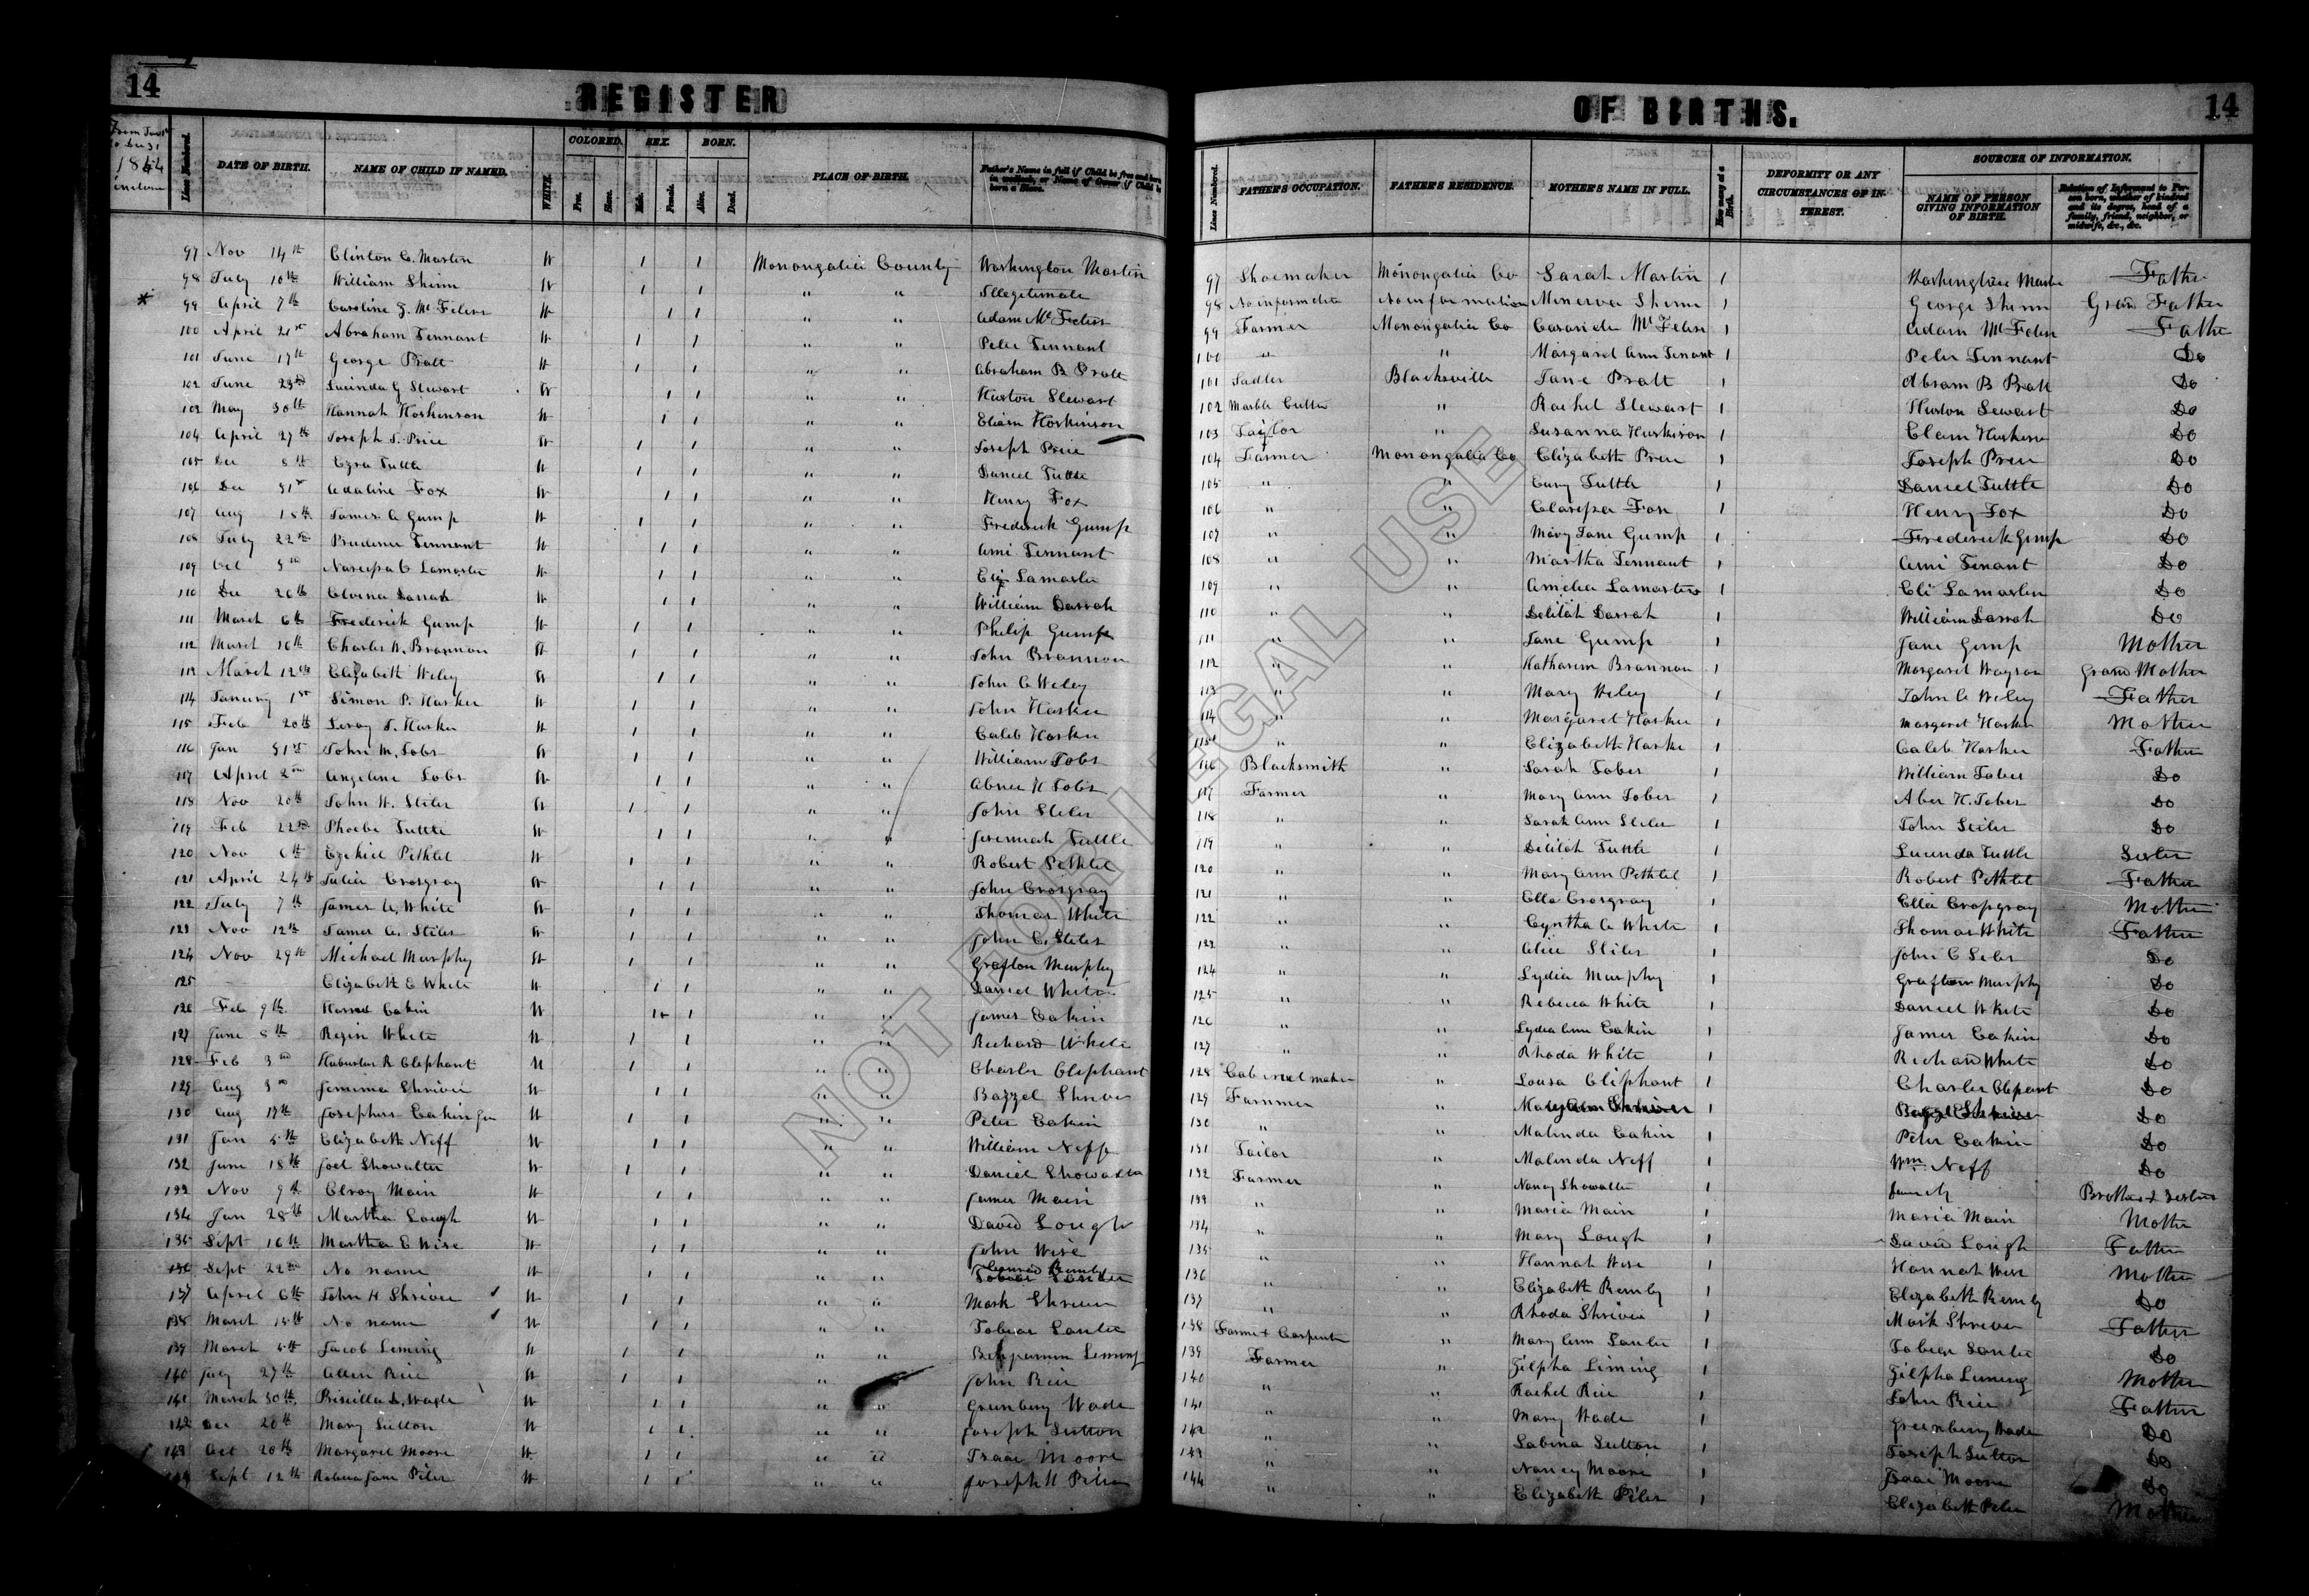 14 REGISTER OF BIRTHS. 14
Lines Numbered. DATE OF BIRTH. NAME OF CHILD IF NAMED. WHITE. COLORED. Free. Slave. SEX. Male. Female. BORN. Alive. Dead. PLACE OF BIRTH. Father's Name in full if Child be free and born in wedlock, or Name of Owner if Child be born a Slave.
Lines Numbered. FATHER'S OCCUPATION. FATHER'S RESIDENCE. MOTHER'S NAME IN FULL. How many at a Birth. DEFORMITY OR ANY CIRCUMSTANCES OF INTEREST. SOURCES OF INFORMATION. NAME OF PERSON GIVING INFORMATION OF BIRTH. Relation of Informant to Person born, whether of kindred and its degree, head of a family, friend, neighbor, or midwife, &c., &c.
97 Nov 14th Clinton C. Martin W 1 1 Monongalia County Washington Martin 97 Shoemaker Monongalia Co Sarah Martin 1 Father
98 July 10th William Shinn W 1 1 " " Illegitimate 98 No information No information Minerva Shinn 1 George Shinn Grand Father
99 April 7th Caroline W 1 1 " " Adam 99 Farmer Monongalia Co 1 Adam Father
100 April 21st Abraham Tennant W 1 1 " " Peter Tennant 100 " " Margaret Ann Tenant 1 Peter Tennant Do
101 June 19th George Pratt W 1 1 " " Abraham B Pratt 101 Sadler Blacksville Jane Pratt 1 Abram B Pratt Do
102 June 23rd Lucinda G Stewart W 1 1 " " Huston Stewart 102 Marble Cutter " Rachel Stewart 1 Huston Sewart Do
103 May 30th Hannah Hoskinson W 1 1 " " Elism Hoskinson 103 Taylor " Susanna 1 Do
104 April 27th Joseph S. Price W 1 1 " " Joseph Price 104 Farmer Monongalia Co Elizabeth Price 1 Joseph Price Do
105 Dec 8th Ezra Tuttle W 1 1 " " Daniel Tuttle 105 " " Tuttle 1 Daniel Tuttle Do
106 Dec 31st Adaline Fox W 1 1 " " Henry Fox 106 " " Fox 1 Henry Fox Do
107 Aug 18th James A Gump W 1 1 " " Frederick Gump 107 " " Mary Jane Gump 1 Frederick Gump Do
108 July 22nd Prudence Tennant W 1 1 " " Ami Tennant 108 " " Martha Tennant 1 Ami Tenant Do
109 Oct Lamaster W 1 1 " " Eli Lamaster 109 " " Amelia Lamasters 1 Eli Lamaster Do
110 Dec 26th Darrah W 1 1 " " William Darrah 110 " " Delilah Darrah 1 William Darrah Do
111 March 6th Frederick Gump W 1 1 " " Philip Gump 111 " " Jane Gump 1 Jane Gump Mother
112 March 16th Charles W. Brannon W 1 1 " " John Brannon 112 " " Katharine Brannon 1 Margaret Grand Mother
113 March 12th Elizabeth Wiley W 1 1 " " John C Wiley 113 " " Mary Wiley 1 John C Wiley Father
114 January 1st Simon P. Hasker W 1 1 " " John Hasker 114 " " Margaret Hasker 1 Margaret Hasker Mother
115 Feb 20th Leroy S. Hasker W 1 1 " " Caleb Hasker 115 " " Elizabeth Hasker 1 Caleb Hasker Father
116 Jan 31st John M. Tobs W 1 1 " " William Tobs 116 Blacksmith " Sarah Tober 1 William Tober Do
117 April 2nd Angeline Tobs W 1 1 " " Abner H Tobs 117 Farmer " Mary Ann Tober 1 Aber H. Tober Do
118 Nov 20th John W. Stiles W 1 1 " " John Stiles 118 " " Sarah Ann Stiles 1 John Stiles Do
119 Feb 22nd Phoebe Tuttle W 1 1 " " Jeremiah Tuttle 119 " " Delilah Tuttle 1 Lucinda Tuttle Sister
120 Nov 6th Ezekiel Pethtel W 1 1 " " Robert Pethtel 120 " " Mary Ann Pethtel 1 Robert Pethtel Father
121 April 24th Julia Crosgray W 1 1 " " John Crosgray 121 " " Ella Crosgray 1 Ella Crosgray Mother
122 July 7th James A. White W 1 1 " " Thomas White 122 " " Cyntha A White 1 Thomas White Father
123 Nov 12th James A. Stiles W 1 1 " " John C. Stiles 123 " " Alice Stiles 1 John C Do
124 Nov 29th Michael Murphy W 1 1 " " Grafton Murphy 124 " " Lydia Murphy 1 Grafton Murphy Do
125 Elizabeth E White W 1 1 " " Daniel White 125 " " Rebecca White 1 Daniel White Do
126 Feb 9th Eakin W 1 " " James Eakin 126 " " Lydia Ann Eakin 1 James Eakin Do
127 June 8th Rezin White W 1 1 " " Richard White 127 " " Rhoda White 1 Richard White Do
128 Feb 3rd R Oliphant W 1 1 " " Charles Oliphant 128 Cabinet maker " Lousa Oliphant 1 Charles Do
129 Aug 3rd Jemima Shriver W 1 1 " " Bazzel Shriver 129 Farmer " Mary Ann Shriver 1 Shriver Do
130 Aug 19th Josephus Eakin W 1 1 " " Peter Eakin 130 " " Malinda Eakin 1 Peter Eakin Do
131 Jan 5th Elizabeth Neff W 1 1 " " William Neff 131 Tailor " Malinda Neff 1 Wm Neff Do
132 June 18th Joel Showalter W 1 1 " " Daniel Showalter 132 Farmer " Nancy Showalter 1 Family Brother & Sister
133 Nov 9th Elroy Main W 1 1 " " James Main 133 " " Maria Main 1 Maria Main Mother
134 Jan 28th Martha Lough W 1 1 " " David Lough 134 " " Mary Lough 1 David Lough Father
135 Sept 16th Martha E Wise W 1 1 " " John Wise 135 " " Hannah Wise 1 Hannah Wise Mother
136 Sept 22nd No name W 1 1 " " 136 " " Elizabeth Remly 1 Elizabeth Remly Do
137 April 6th John H Shriver W 1 1 " " Mark Shriver 137 " " Rhoda Shriver 1 Mark Shriver Father
138 March 15th No name W 1 1 " " Tobias 138 Farmer & Carpenter " Mary Ann 1 Tobias Do
139 March 5th Jacob Leming W 1 1 " " Benjamin Leming 139 Farmer " Zilpha Liming 1 Zilpha Liming Mother
140 July 27th Allen Rice W 1 1 " " John Rice 140 " " Rachel Rice 1 John Rice Father
141 March 30th Priscilla L. Wade W 1 1 " " Greenbery Wade 141 " " Mary Wade 1 Greenberry Wade Do
142 Dec 20th Mary Sutton W 1 1 " " Joseph Sutton 142 " " Sabina Sutton 1 Joseph Sutton Do
143 Oct 20th Margaret Moore W 1 1 " " Isaac Moore 143 " " Nancy Moore 1 Isaac Moore Do
144 Sept 12th Rebecca Jane Piles W 1 1 " " Joseph H Piles 144 " " Elizabeth Piles 1 Elizabeth Piles Mother
NOT FOR LEGAL USE